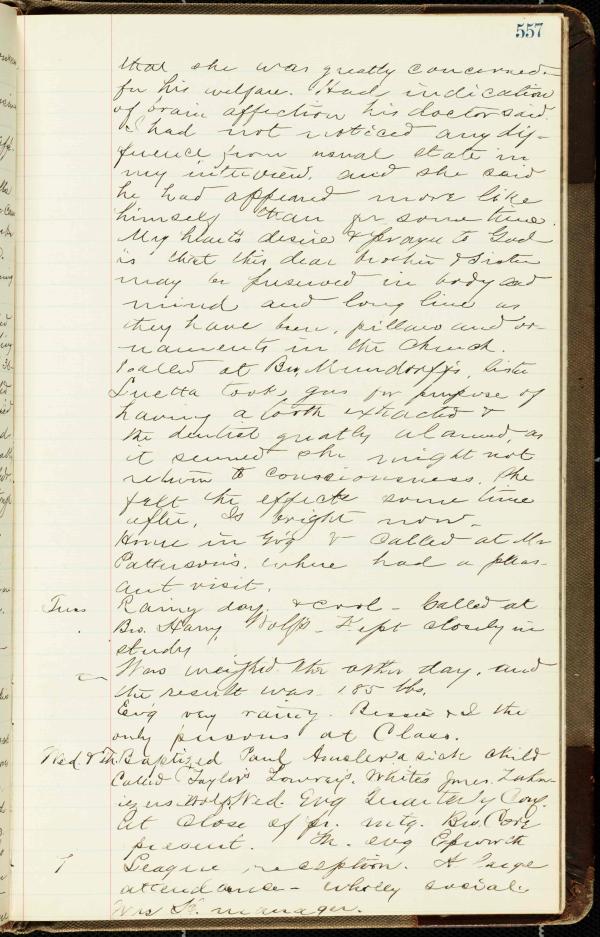 557
that she was greatly concerned
for his welfare. Had indication
of brain affection his doctor said.
I had not noticed any dif-
ference from usual state in
my interview, and she said
he had appeared more like
himself than for some time.
My heart's desire & prayer to God
is that this dear brother & sister
may be preserved in body and
mind and long live as
they have been, pillars and or-
naments in the Church.
Called at Bro. Mundorff's, Sister
Luetta took gas for purpose of
having a tooth extracted &
the dentist greatly alarmed, as
it seemed she might not
return to consciousness. She
felt the effects some time
after. Is bright now.
Home in Ev'g & called at Mr
Patterson's. where had a pleas-
ant visit.
Tues Rainy day. & cool - Called at
Bro. Harry Wolf's - Kept closely in
study
Was weighed the other day, and
the result was 185 lbs.
Ev'g very rainy. Bessie & I the
only persons at Class.
Wed. & Th. Baptized Paul Amsler a sick child
Called Taylor's Lowray's. White's Jones.
Wolf Wed. Evg Quarth'y Conf.
At close of pr. mtg. Bro.
present. Th. evg Epworth
7 League reception. A large
attendance - wholly social.
manager.